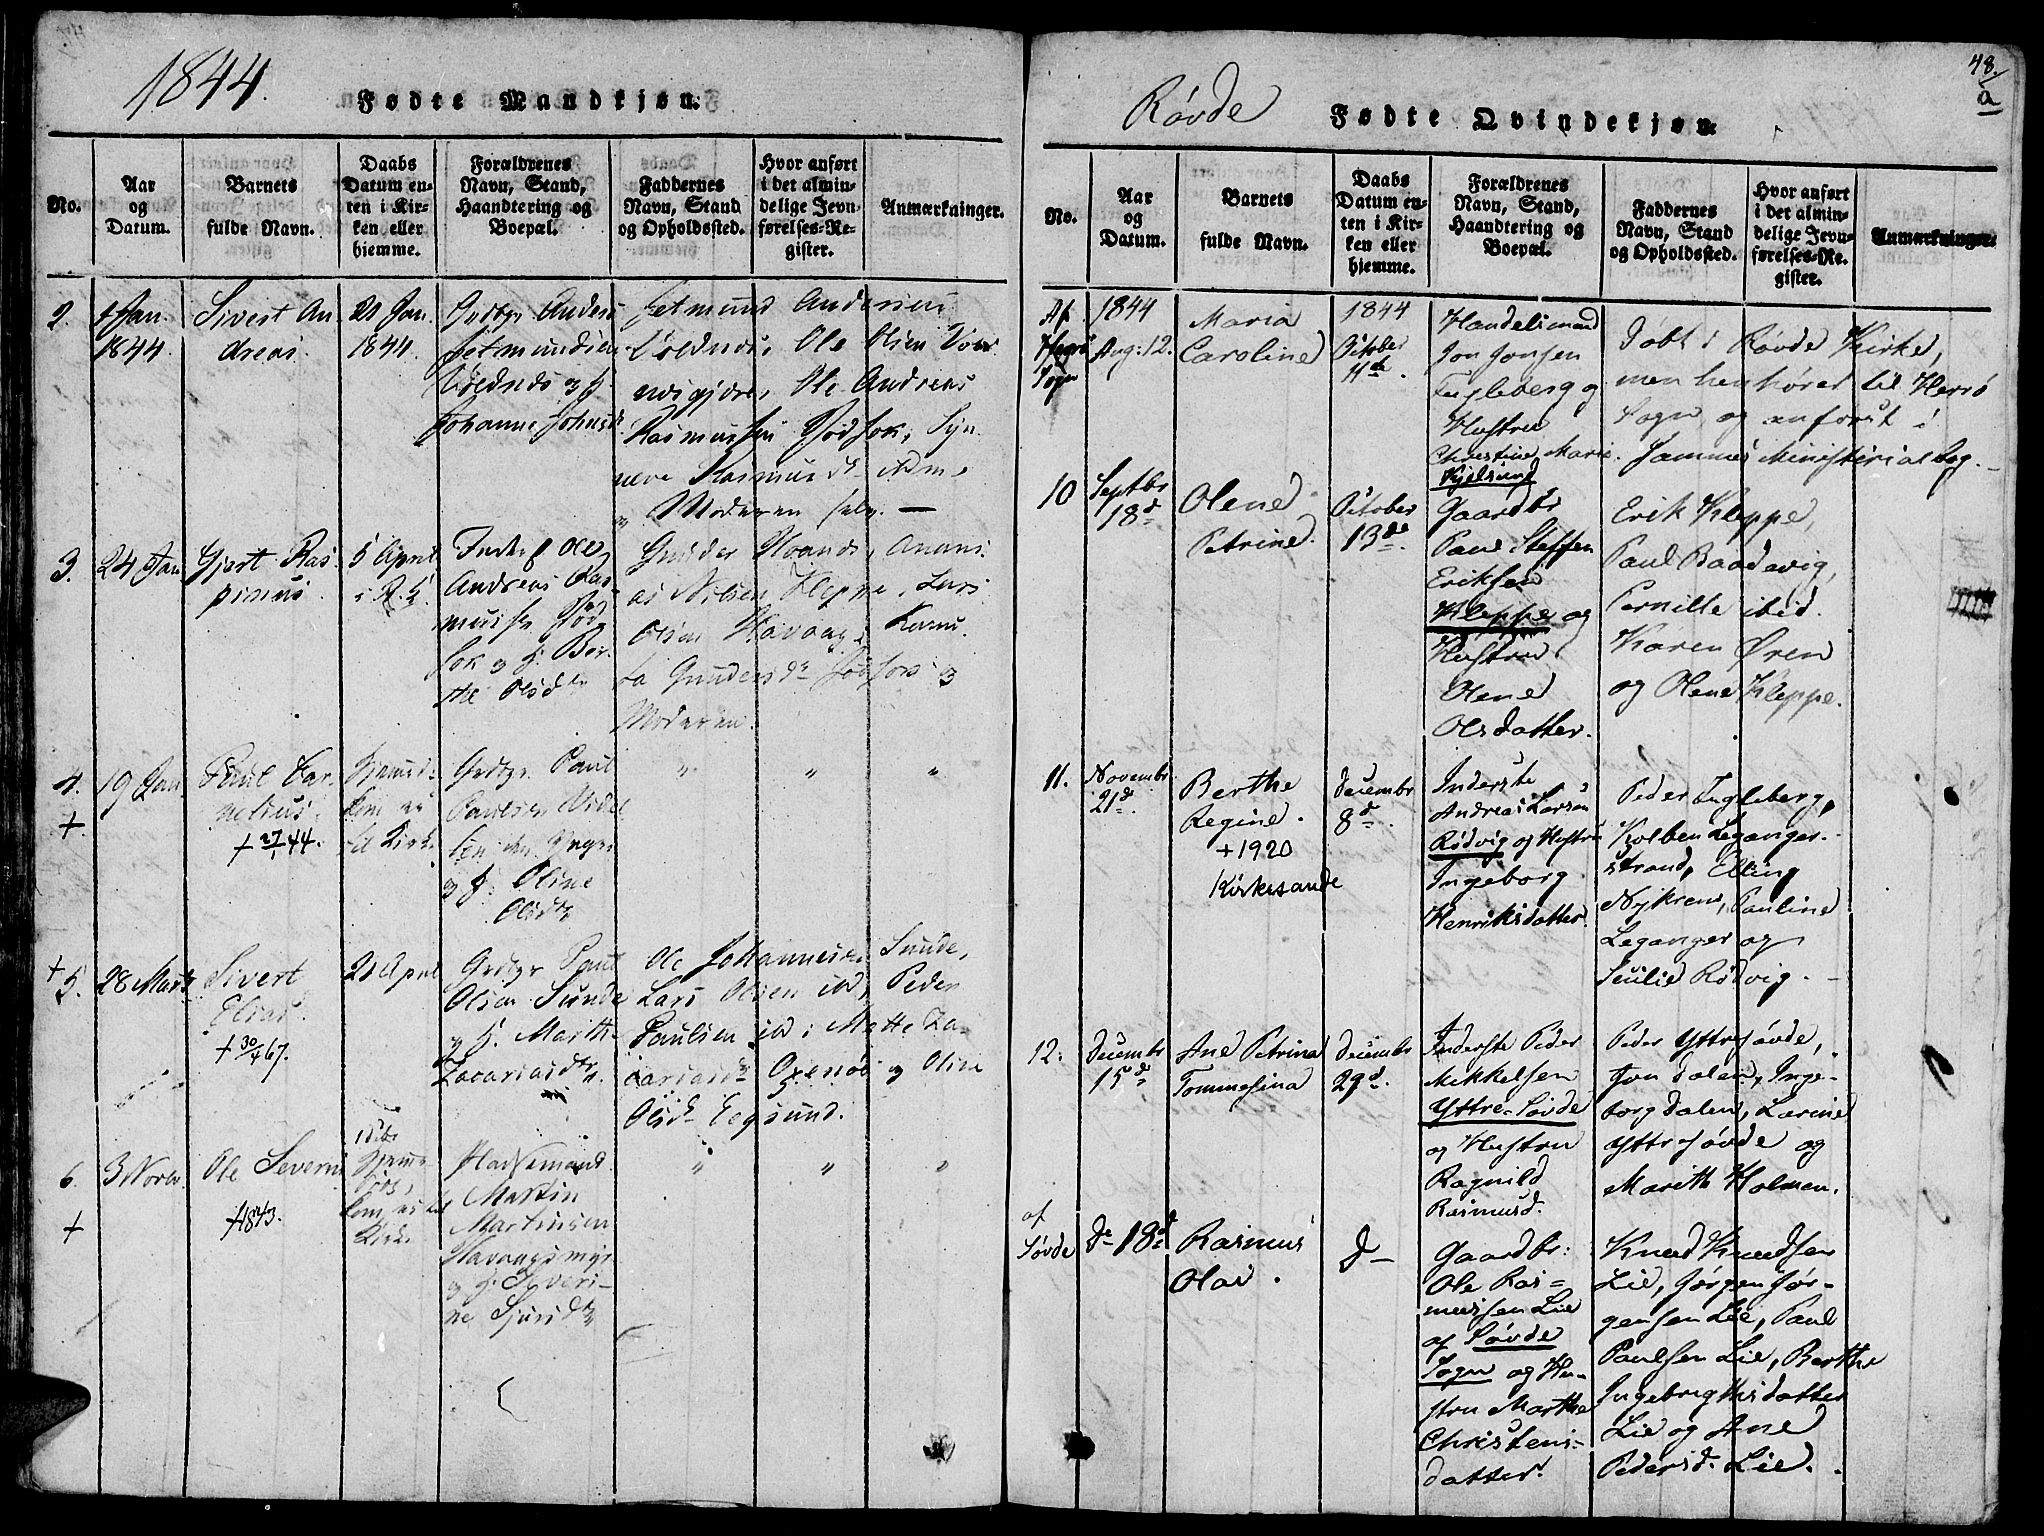 1844.
Fødte Mandkjøn.
No.
Aar
og
Datum.
Barnets
fulde Navn.
Daabs
Datum en-
ten i Kir-
ken eller
hjemme.
Forældrenes
Navn, Stand,
Haandtering og
Boepæl.
Faddernes
Navn, Stand
og Opholdssted.
Hvor anført
i det almin-
delige Jevn-
førelses-Re-
gister.
Anmærkninger.
2.
1 Jan.
1844.
Sivert An
dreas.
21 Jan.
1844.
Anders
Jetmundsen
Voldnæs og H.
Johanne Johnsd.
Jetmund Andersen
Voldnæs, Ole Olsen Vold
næsgjære, Ole Andreas
Rasmussen Rødsok, Syn
neve Rasmusdr
og Moderen selv.
3.
24 Jan
Gjert Ras
pinus.
5 April
i R. K.
Inderst Ole
Andreas Ras
musse Rød
sok og H. Ber
the Olsdtr
Gunder
as Nilsen Kleppe, Lars
Olsen Havaag,
Gundersdr Rødsok og
Moderen.
4.
+
19 Jan.
Paul Cor
nelius.
+ 27/1 44.
Hjemmed.
til Kirke
Paul
Paulsen
den Yngre
og H. Oline
Olsdtr
" " "
+
5.
28 Marts
Sivert
Elias.
+ 30/4 67.
21 April
Paul
Olsen Sunde
og H. Marthe
Zacariasdtr.
Ole Johannesen Sunde,
Lars Olsen ibd, Peder
Paulsen ibd: Mette Za
cariasdr Oxenøe og Oline
Olsdr Eegsund.
6.
+
3 Novbr.
Ole Severin
+1873.
1 Debr
hjemme
døbt,
Kirke
Huusmand
Martin
Martinsen
Havaagsmyr
og H. Severi-
ne Sjursdtr
" " "
48.
a
Røvde
Fødte Qvindekjøn.
No.
Aar
og
Datum.
Barnets
fulde Navn.
Daabs
Datum en-
ten i Kir-
ken eller
hjemme.
Forældrenes
Navn, Stand,
Haandtering og
Boepæl.
Faddernes
Navn, Stand
og Opholdssted.
Hvor anført
i det almin-
delige Jevn-
førelses-Re-
gister.
Anmærkninger.
Af
Herrø
Sogn
1844
Aug: 12.
Maria
Caroline
1844
October
11de.
Handelsmand
Jon Jonsen
Fugleberg og
Hustru
Christine Marie
Kjelsund
Døbt i Røvde Kirke,
men henhører til Herrø
Sogn og anført i
sammes Ministerialbog.
10
Septbr
18d
Olene
Petrine.
October
13de.
Gaardbr
Paul Steffen
Eriksen
Kleppe og
Hustru
Olene
Olsdatter.
Erik Kleppe,
Paul Baadsvig,
Pernille ibid.
Karen Øren
og Olene Kleppe.
11.
Novembr
21d.
Berthe
Regine.
+1920
Kirkesande
Decembr
8d
Inderste
Andreas Larsen
Rødvig og Hustru
Ingeborg
Henriksdatter.
Peder Fugleberg,
Kolben Leganger-
strand, Elling
Nykrem, Pauline
Leganger og
Secilie Rødvig.
12.
Decembr
15d
Ane Petrina
Tommesina
Decembr
29d.
Inderste Peder
Mikkelsen
Yttre-Søvde
og Hustru
Ragnild
Rasmusd.
Peder Yttresøvde,
Jon Dalen, Inge-
borg Dalen, Larine
Yttresøvde og
Marith Holmen.
af
Søvde
D- 18d
Rasmus
Olai.
D-
Gaardbr:
Ole Ras-
mussen Lie
af Søvde
Sogn og Hu-
stru Marthe
Christens-
datter.
Knud Knudsen
Lie, Jørgen Jør-
gensen Lie, Paul
Paulsen Lie, Berthe
Ingebrigthsdatter
Lie og Ane
Pedersd. Lie.